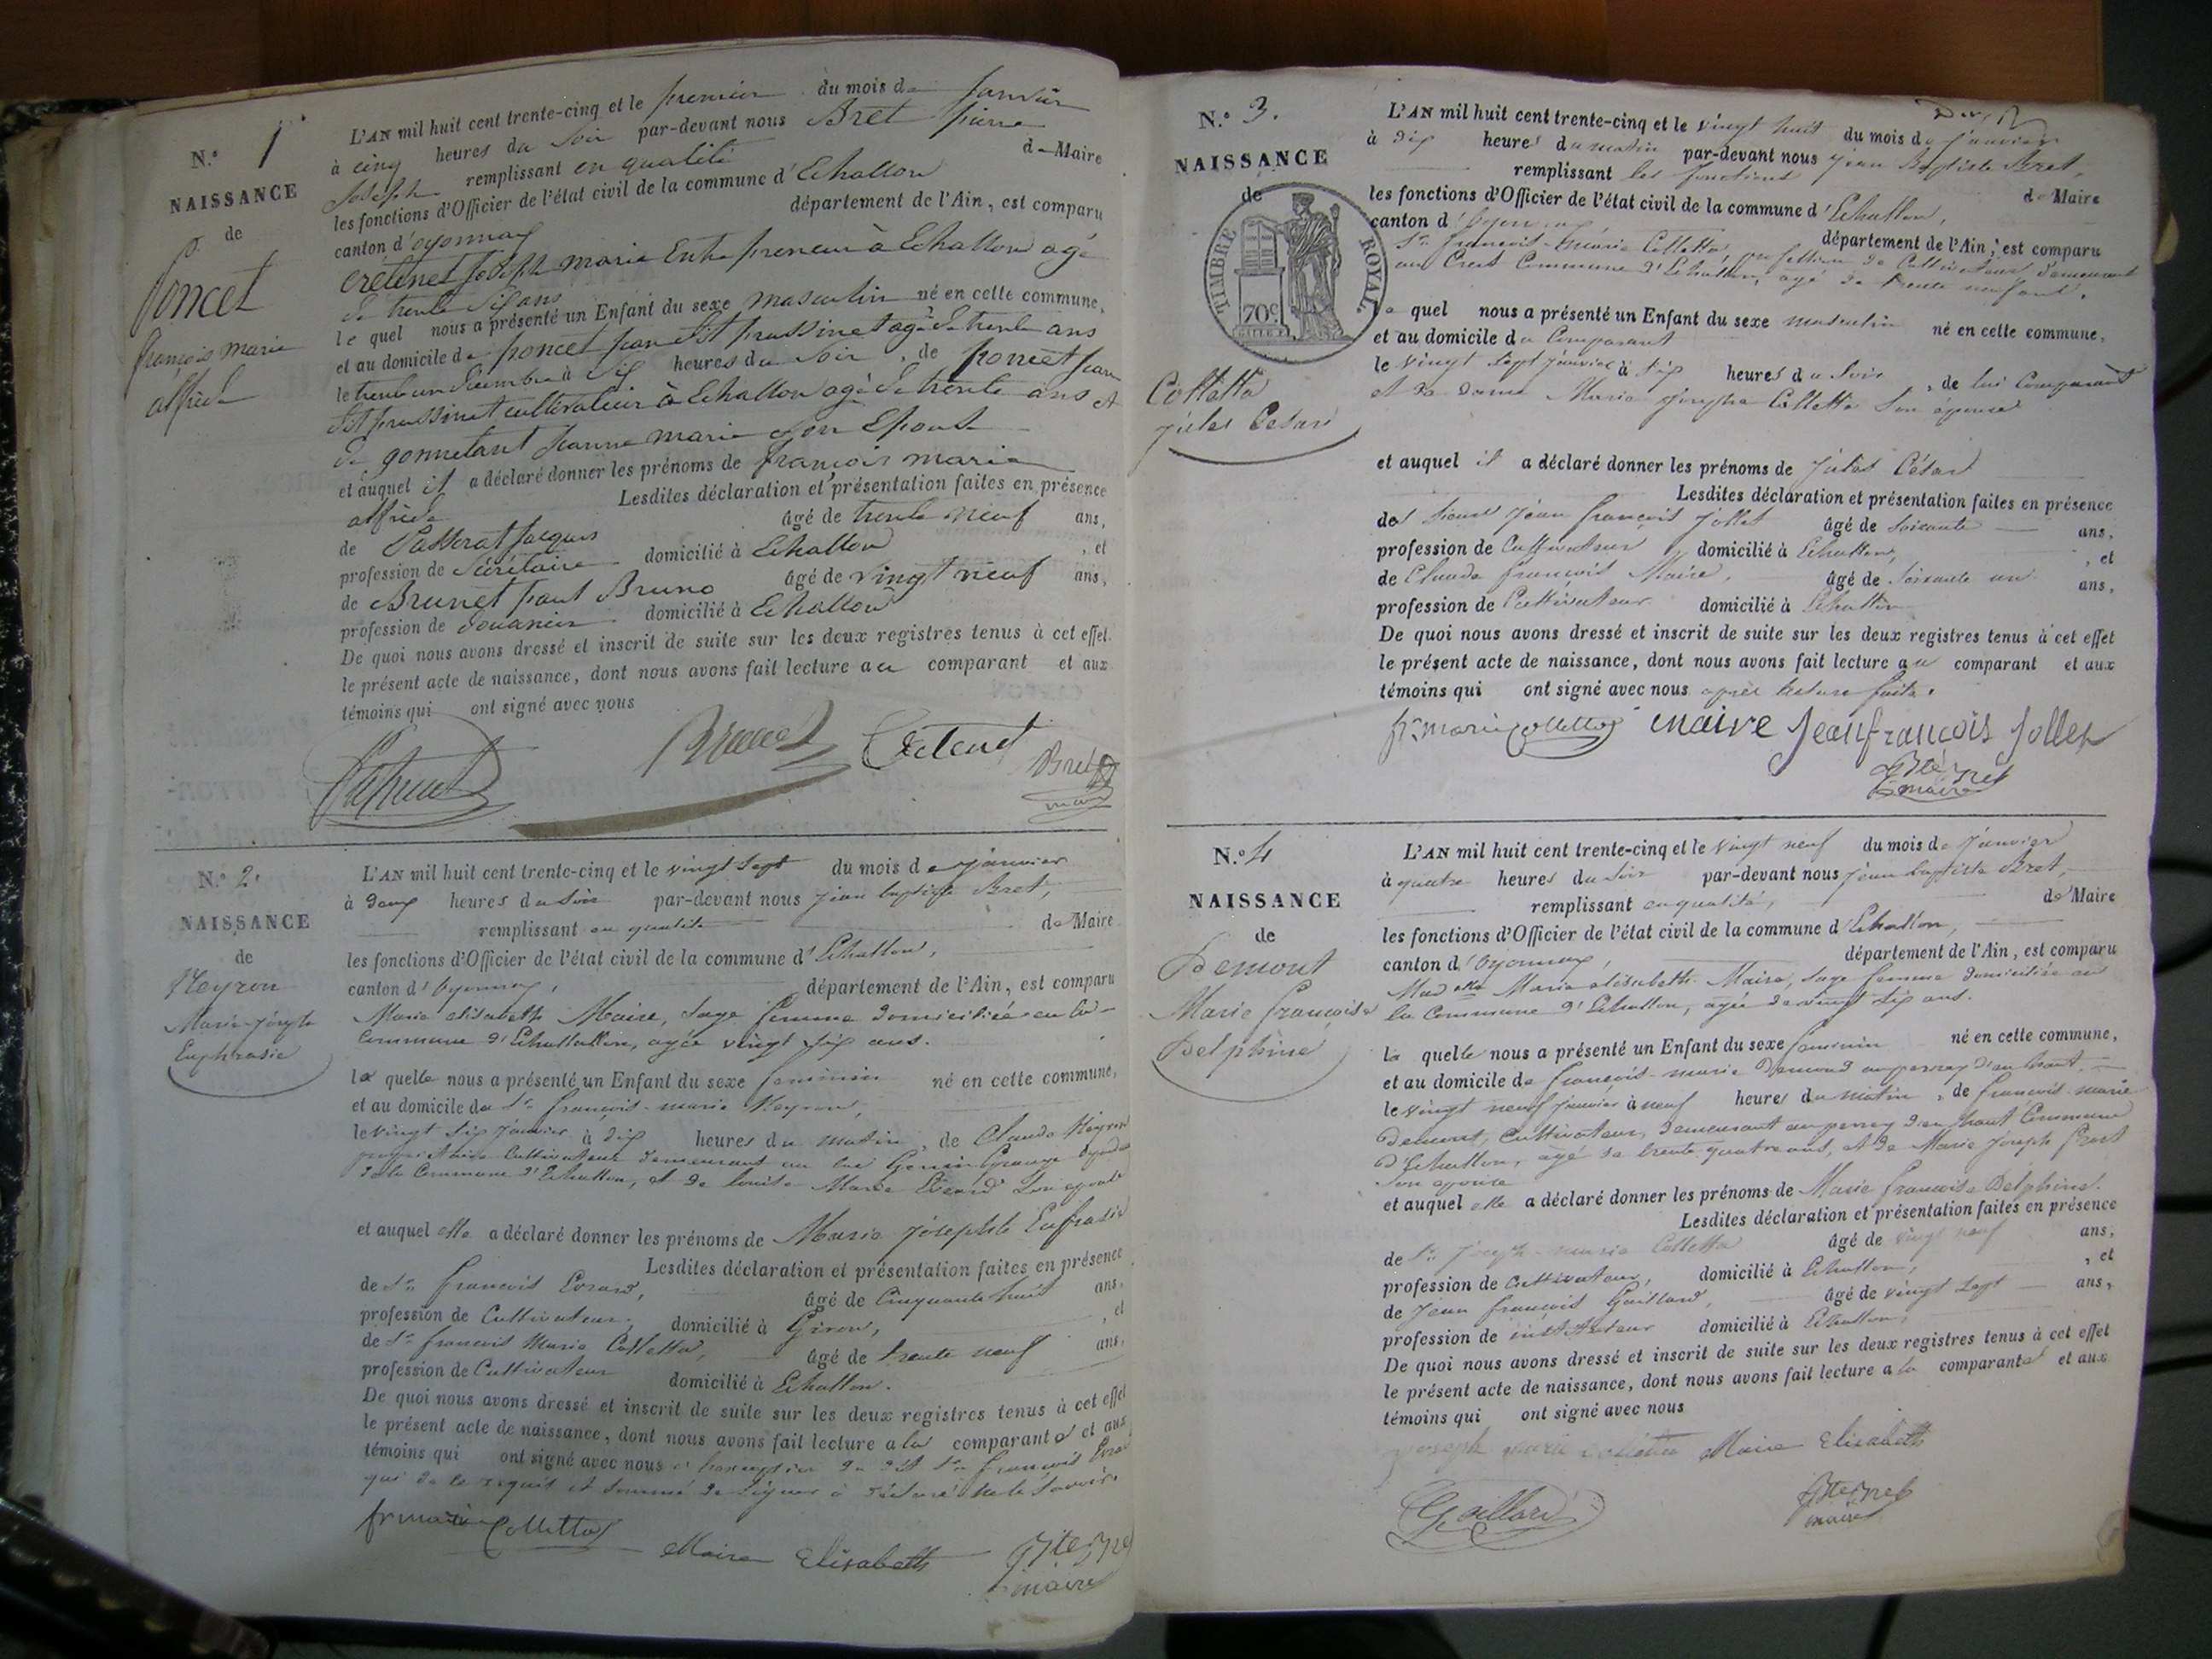 N.° 1
NAISSANCE
de
Poncet
françois marie
alfred
L'AN mil huit cent trente-cinq et le premier du mois de janvier
à cinq heures du soir par-devant nous Bret pierre
joseph remplissant en qualité de Maire
les fonctions d'Officier de l'état civil de la commune d'Echallon
canton d'oyonnax département de l'Ain, est comparu
cretenet joseph marie Entrepreneur à Echallon agé
de trente six ans
le quel nous a présenté un Enfant du sexe masculin né en cette commune,
et au domicile de poncet jean dit prussinet agé de trente ans
le trente un décembre à dix heures du soir, de poncet jean
dit prussinet cultivateur à Echallon agé de trente ans et
de gonnetant jeanne marie son Epouse
et auquel il a déclaré donner les prénoms de françois marie
alfred Lesdites déclaration et présentation faites en présence
de Passerat jacques âgé de trente neuf ans,
profession de Sécrétaire domicilié à Echallon, et
de Brunet paul Bruno âgé de vingt neuf ans,
profession de douanier domicilié à Echallon
De quoi nous avons dressé et inscrit de suite sur les deux registres tenus à cet effet
le présent acte de naissance, dont nous avons fait lecture au comparant et aux
témoins qui ont signé avec nous
Brunet Cretenet Bret
maire
N.° 2.
NAISSANCE
de
Neyron
Marie-Joseph
Euphrasie
L'AN mil huit cent trente-cinq et le vingt sept du mois de janvier
à deux heures du soir par-devant nous jean baptiste Bret,
remplissant en qualité de Maire
les fonctions d'Officier de l'état civil de la commune d'Echallon,
canton d'Oyonnax, département de l'Ain, est comparu
Marie élisabeth Maire, sage femme domiciliée en la
Commune d'Echallon, agée vingt six ans.
la quelle nous a présenté un Enfant du sexe feminin né en cette commune,
et au domicile de Sr françois-marie Neyron,
le vingt six janvier à dix heures du matin, de Claude Neyron
propriétaire Cultivateur demeurant au lieu
de la Commune d'Echallon, et de louise Marie Evrard Son epouse
et auquel elle a déclaré donner les prénoms de Marie josephte Eufrasie
Lesdites déclaration et présentation faites en présence
de Sr françois Evrard, âgé de Cinquante huit ans,
profession de Cultivateur, domicilié à Giron, , et
de Sr françois Marie Colletta, âgé de trente neuf ans,
profession de Cultivateur domicilié à Echallon.
De quoi nous avons dressé et inscrit de suite sur les deux registres tenus à cet effet
le présent acte de naissance, dont nous avons fait lecture a la comparante et aux
témoins qui ont signé avec nous a l'exception du dit Sr françois Evrard
qui de ce requis et sommé de signer a déclaré ne le savoir.
fr marie Collettaz Maire Elisabeth Jte Bret
maire
N.° 3.
NAISSANCE
de
TIMBRE ROYAL
70c.
Colletta
jules César
L'AN mil huit cent trente-cinq et le vingt huit du mois de janvier
à dix heures du matin par-devant nous jean Baptiste Bret,
remplissant les fonctions de Maire
les fonctions d'Officier de l'état civil de la commune d'Echallon,
canton d'Oyonnax département de l'Ain, est comparu
Sr françois-marie Colletta, profession de Cultivateur demeurant
au Crest Commune d'Echallon, agé de trente neuf ans,
le quel nous a présenté un Enfant du sexe masculin né en cette commune,
et au domicile du Comparant
le vingt sept janvier à six heures du soir, de lui Comparant
et de dame Marie josephe Colletta Son épouse
et auquel il a déclaré donner les prénoms de jules César
Lesdites déclaration et présentation faites en présence
des Sieurs jean françois jollet âgé de soixante ans,
profession de Cultivateur domicilié à Echallon, , et
de Claude françois Maire, âgé de soixante un ans,
profession de Cultivateur domicilié à Echallon
De quoi nous avons dressé et inscrit de suite sur les deux registres tenus à cet effet
le présent acte de naissance, dont nous avons fait lecture au comparant et aux
témoins qui ont signé avec nous après lecture faite.
fr marie Collettaz maire Jean françois Jollet
Jte Bret
maire
N.° 4
NAISSANCE
de
Demont
Marie françoise
Delphine
L'AN mil huit cent trente-cinq et le vingt neuf du mois de janvier
à quatre heures du soir par-devant nous jean baptiste Bret,
remplissant en qualité, de Maire
les fonctions d'Officier de l'état civil de la commune d'Echallon,
canton d'Oyonnax, département de l'Ain, est comparu
Mad elle Marie elisabeth Maire, sage femme domiciliée en
la Commune d'Echallon, agée de vingt six ans.
la quelle nous a présenté un Enfant du sexe feminin né en cette commune,
et au domicile de françois-marie Demond au d'en haut
le vingt neuf janvier à neuf heures du matin, de françois marie
Demont, Cultivateur, demeurant au d'en haut Commune
d'Echallon, agé de trente quatre ans, et de Marie joseph
son epouse
et auquel elle a déclaré donner les prénoms de Marie françoise Delphine.
Lesdites déclaration et présentation faites en présence
de Sr joseph marie Colletta âgé de vingt neuf ans,
profession de Cultivateur, domicilié à Echallon, , et
de jean françois Gaillard, âgé de vingt sept ans,
profession de instituteur domicilié à Echallon,
De quoi nous avons dressé et inscrit de suite sur les deux registres tenus à cet effet
le présent acte de naissance, dont nous avons fait lecture a la comparante et aux
témoins qui ont signé avec nous
joseph marie colletta Maire Elisabeth
Gaillard Jte Bret
maire